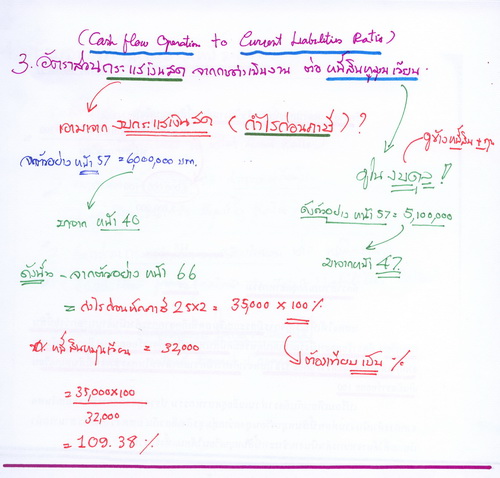 (Cash flow Operation to Current Liabilities Ratio)
3. อัตราส่วนกระแสเงินสด จากการดำเนินงาน ต่อ หนี้สินหมุนเวียน
เอามาจาก งบกระแสเงินสด (กำไรก่อนภาษี) ?
ดูข้างหนี้สิน + ทุน
จากตัวอย่าง หน้า 57 = 6,000,000 บาท.
ดูใน งบดุล !
มาจาก หน้า 40
ดังตัวอย่าง หน้า 57 = 5,100,000
มาจากหน้า 47
ดังนั้น - จากตัวอย่าง หน้า 66
= กำไรก่อนหักภาษี 25x2 = 35,000 x 100 %
หนี้สินหมุนเวียน = 32,000
ต้องเทียบ เป็น %
= 35,000x100
32,000
= 109.38 %